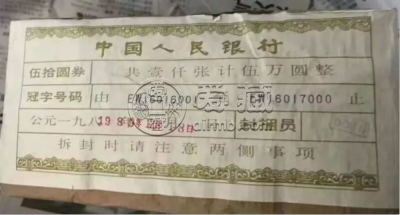 中国人民银行
伍拾圆券 共壹仟张计伍万圆整
冠字号码 由 EW16016001 EW16017000 止
公元一九八 月 日 封捆员
拆封时请注意两侧事项